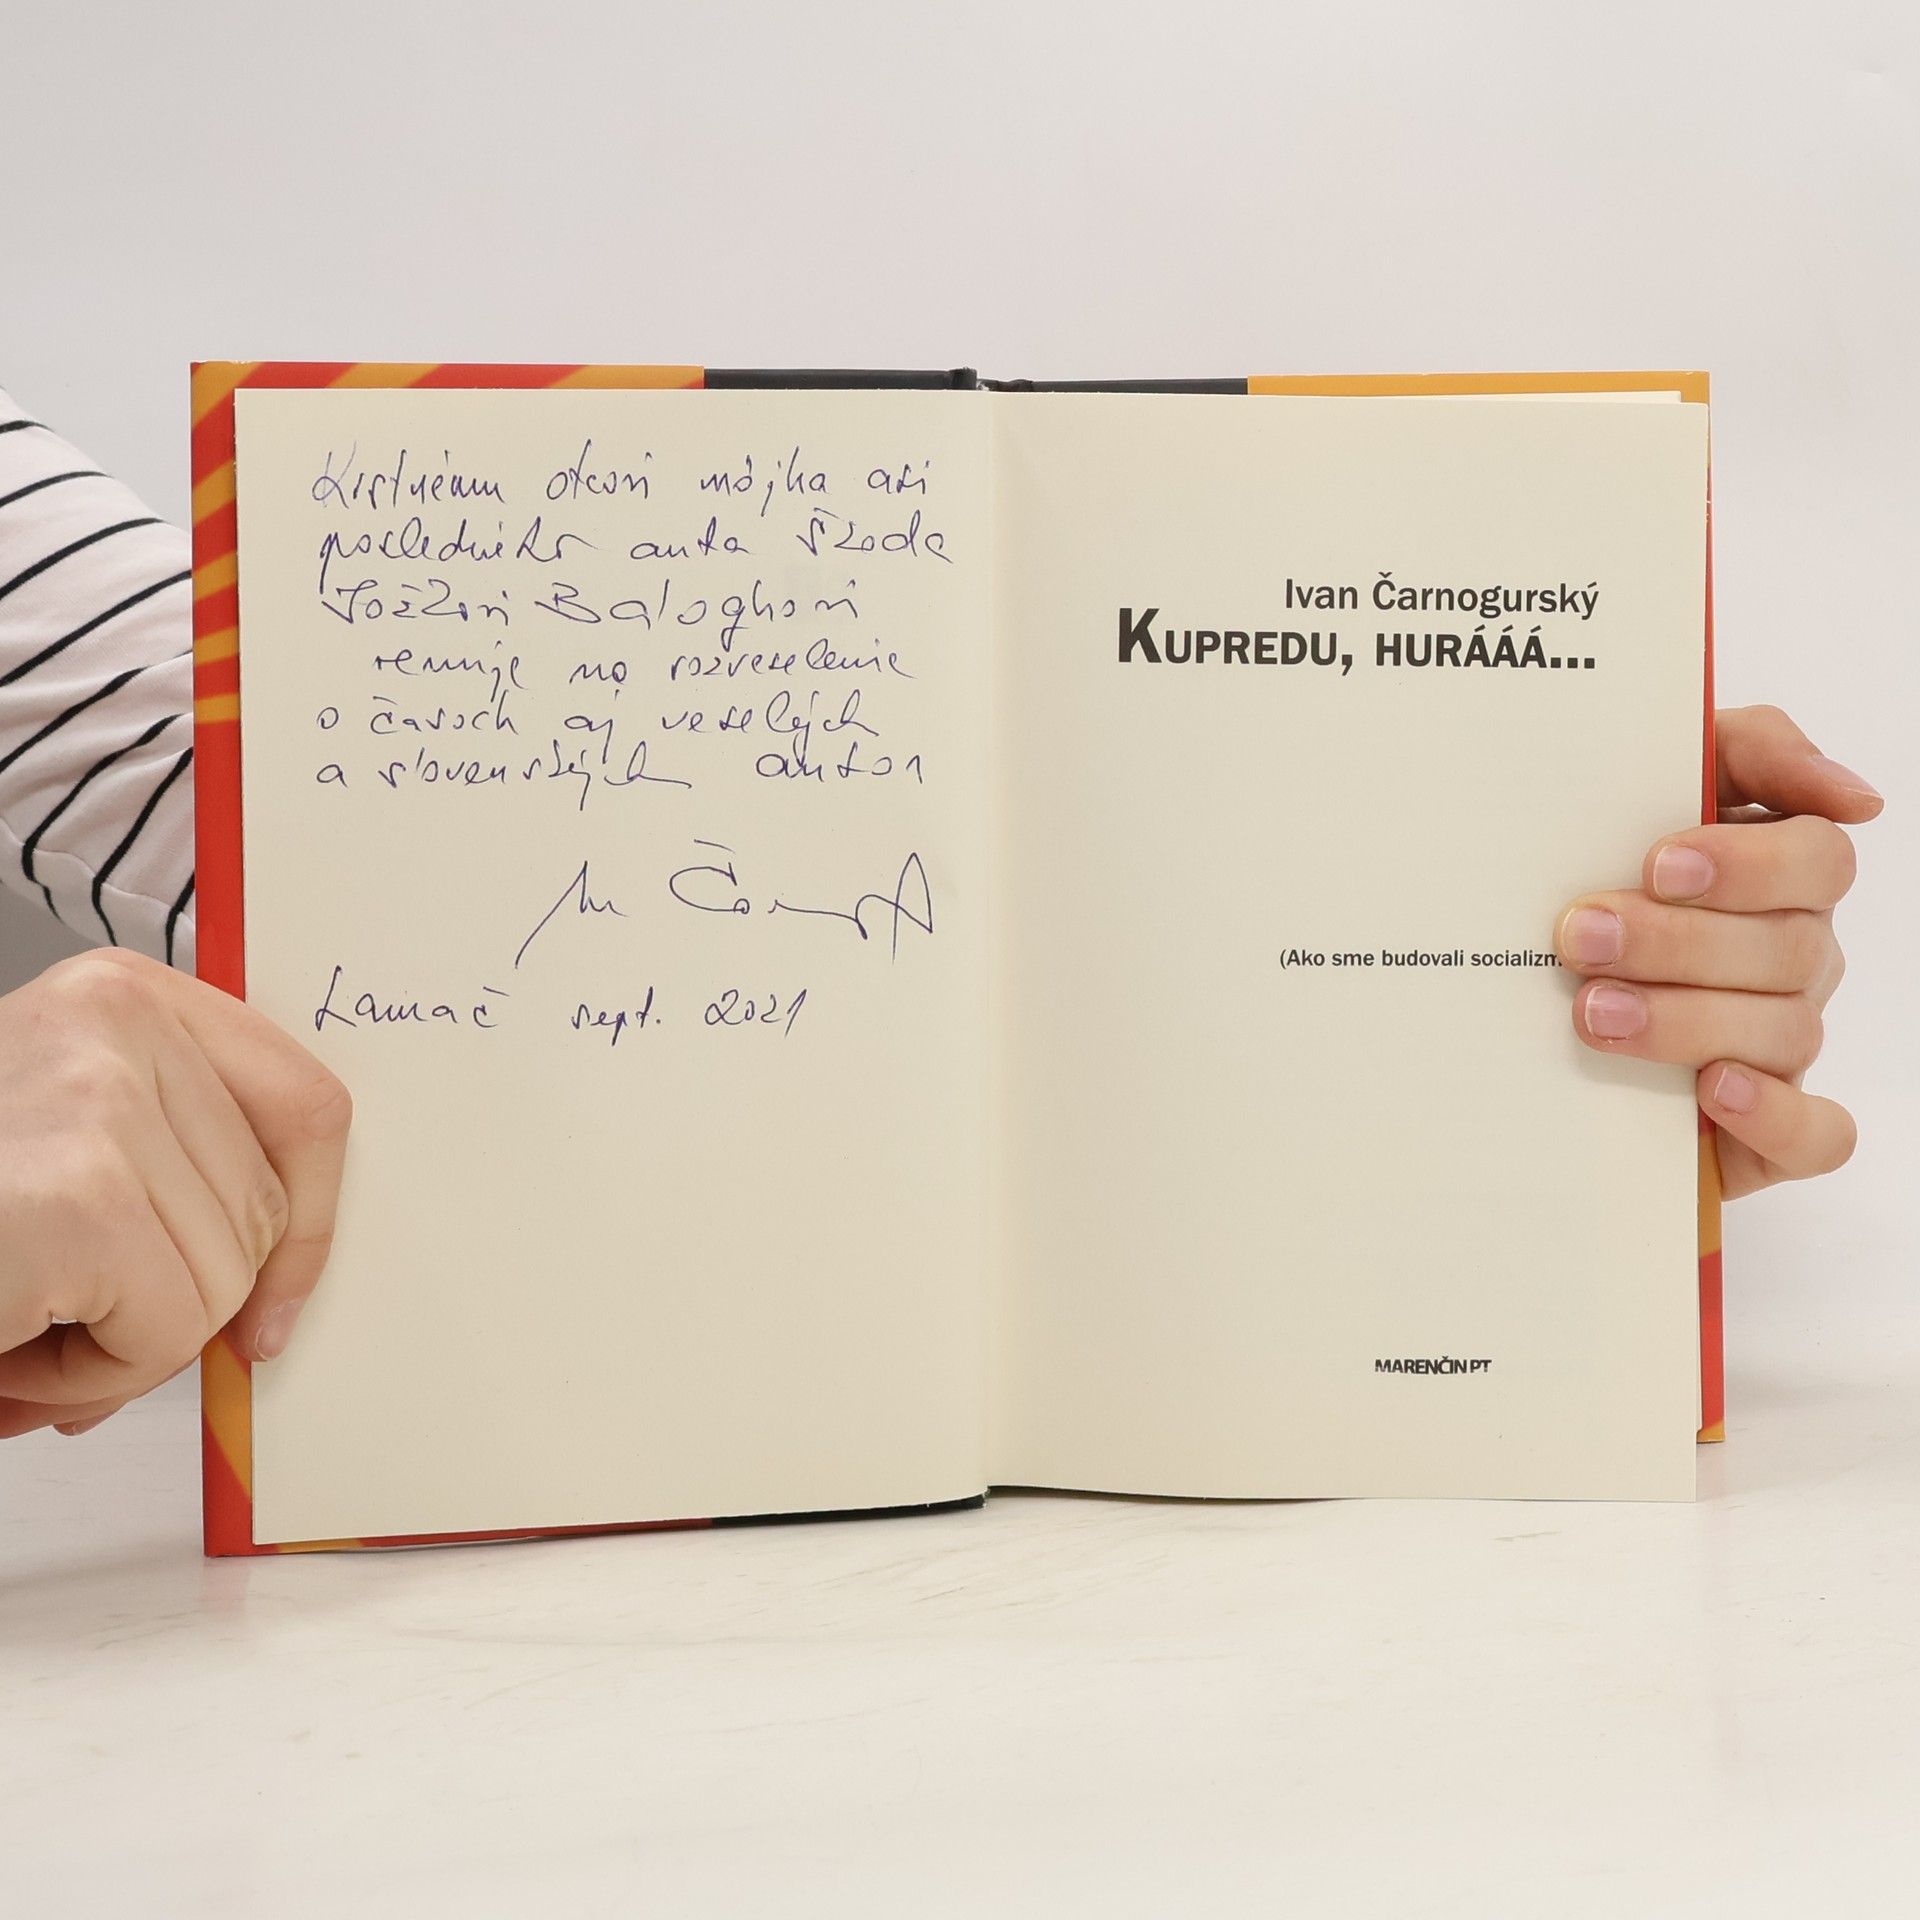 Krstnému otcovi môjho asi
posledného auta Škoda
Jožkovi Baloghovi
venuje na rozveselenie
o časoch aj veselých
a slovenských autor
Lamač sept. 2021
Ivan Čarnogurský
KUPREDU, HURÁÁÁ...
(Ako sme budovali socializm
MARENČIN PT